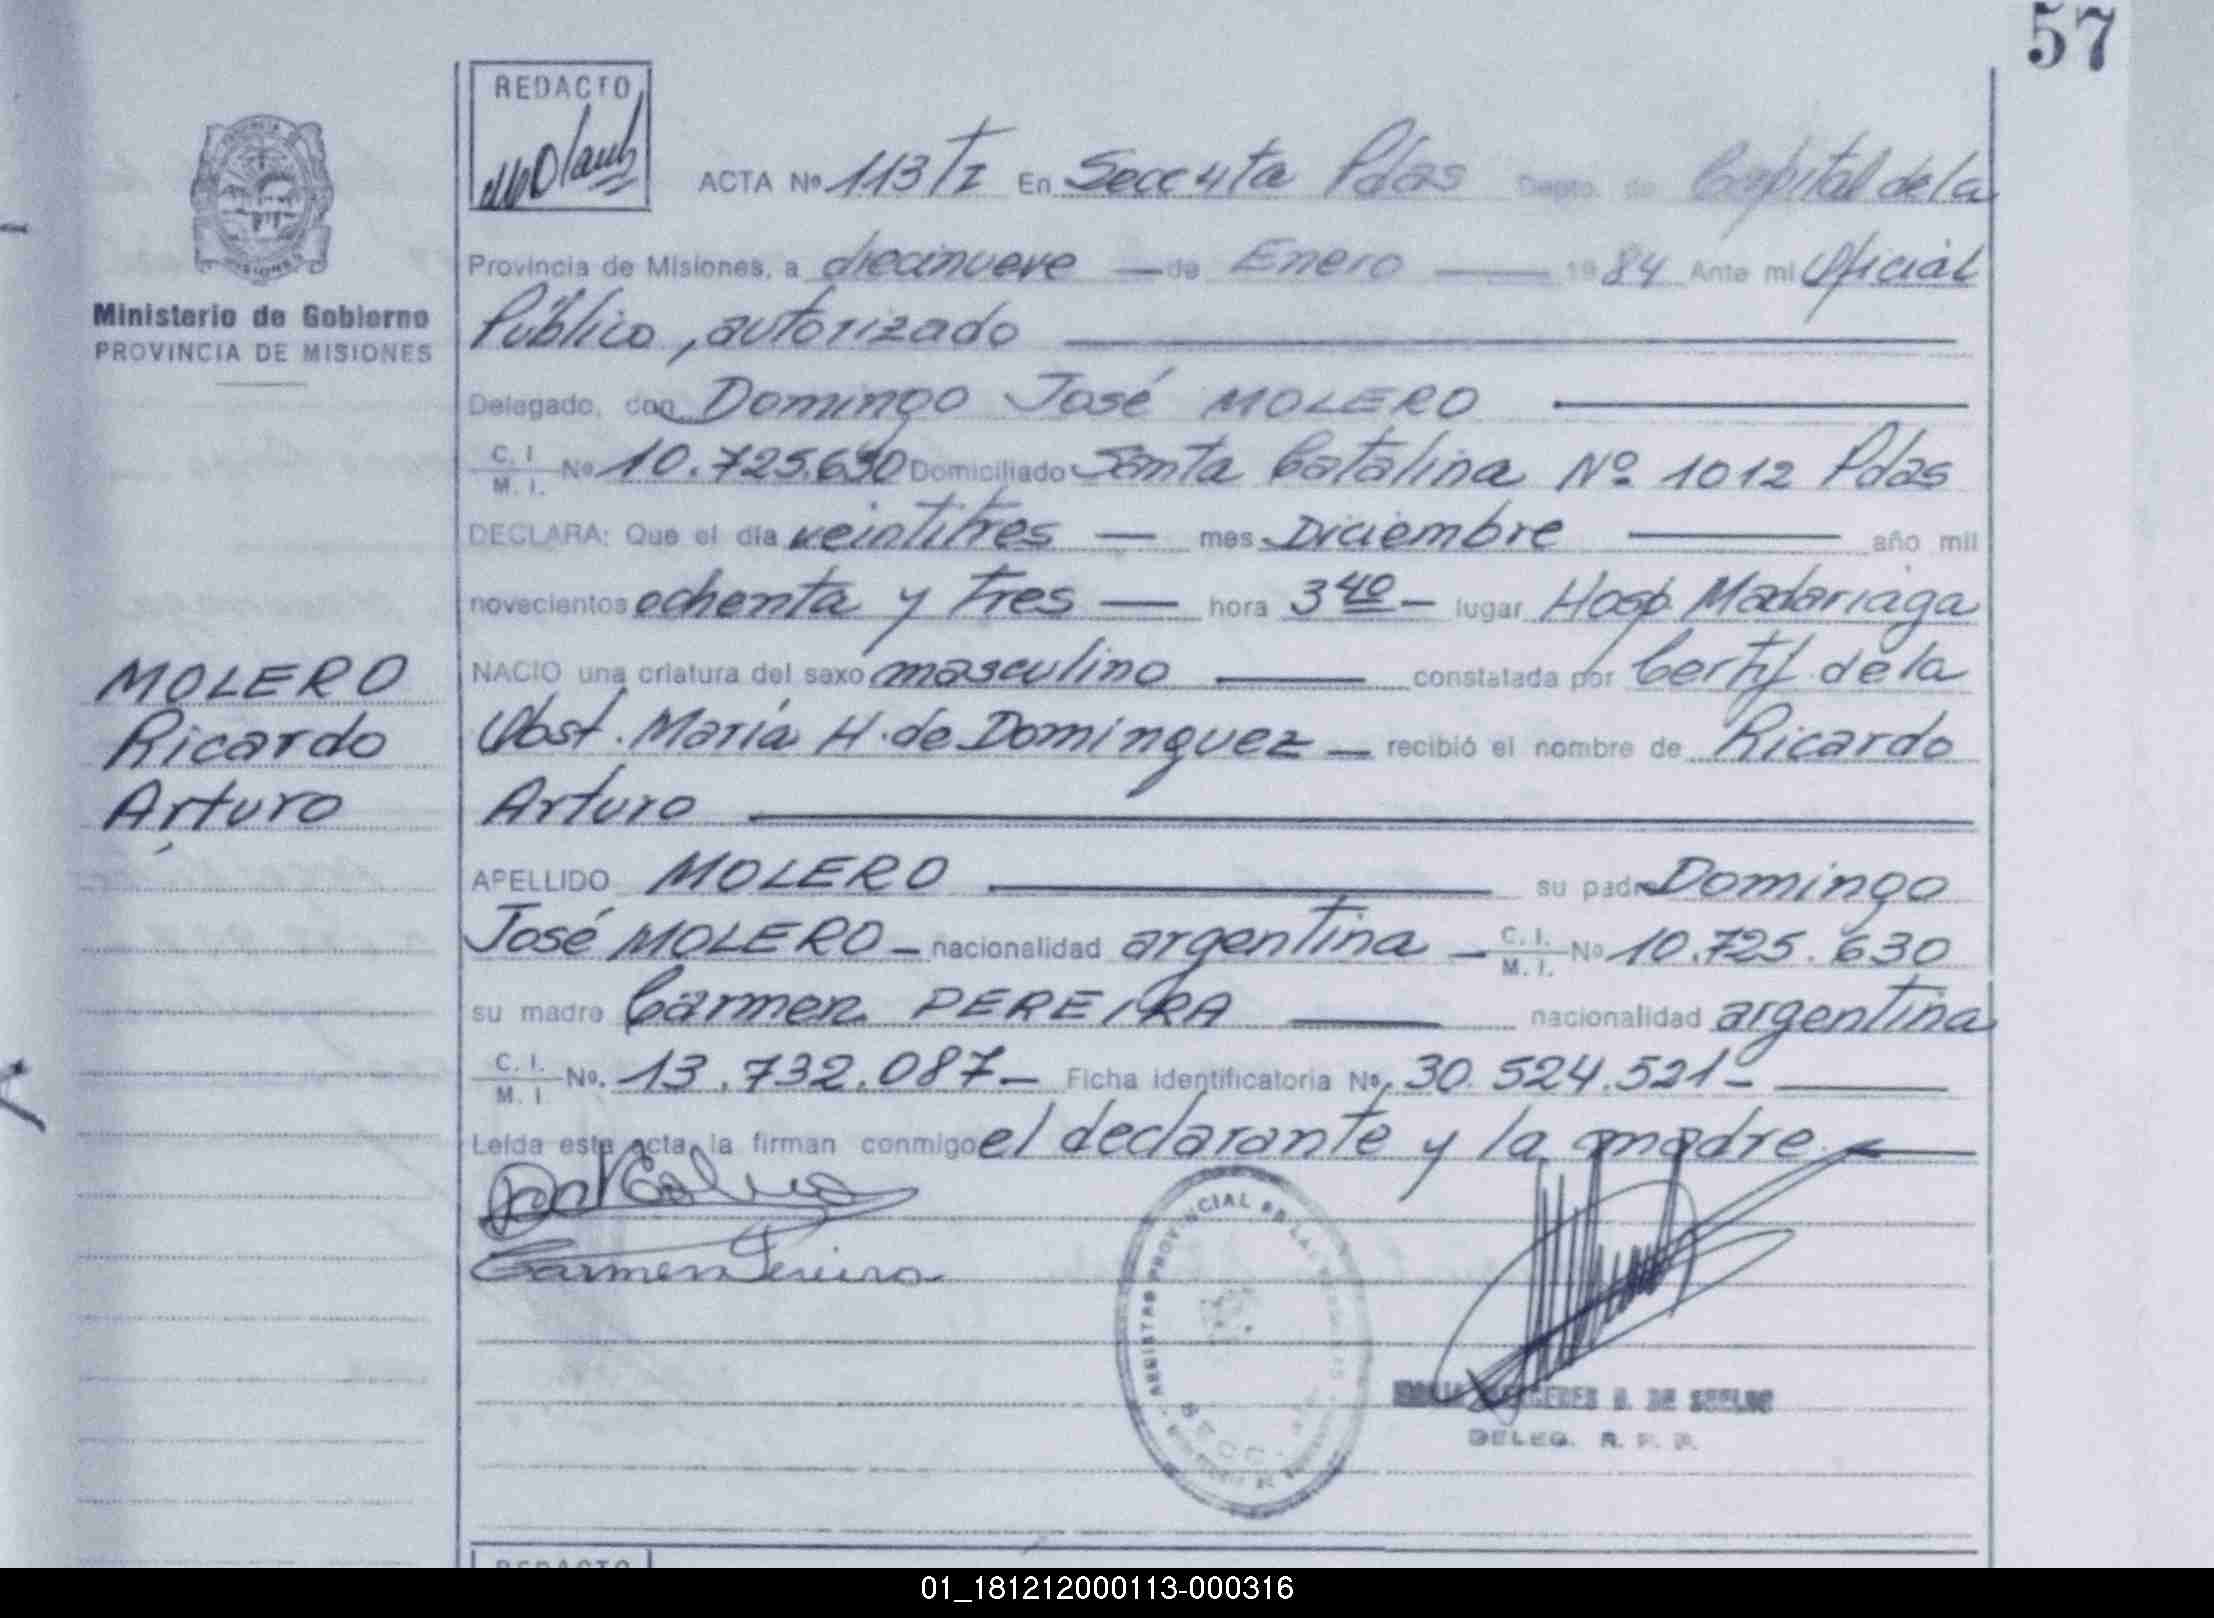 57
REDACTO
ACTA Nº 113 TI En Secc 4ta Pdas Depto. de Capital de la
Provincia de Misiones, a diecinueve — de Enero — 1984 Ante mi Oficial
Público, autorizado
Ministerio de Gobierno
PROVINCIA DE MISIONES
Delegado, don Domingo José MOLERO
C. I. M. I. Nº 10.725.630 Domiciliado Santa Catalina Nº 1012 Pdas
DECLARA: Que el día veintitres — mes Diciembre — año mil
novecientos ochenta y tres — hora 3 40 — lugar Hosp. Madariaga
NACIO una criatura del sexo masculino — constatada por Certif. de la
Obst. María H. de Dominguez — recibió el nombre de Ricardo
Arturo
MOLERO
Ricardo
Arturo
APELLIDO MOLERO — su padre Domingo
José MOLERO — nacionalidad argentina — C. I. M. I. Nº 10.725.630
su madre Carmen PEREIRA — nacionalidad argentina
C. I. M. I. Nº. 13.732.087 — Ficha identificatoria Nº 30.524.521 —
Leída esta acta, la firman conmigo el declarante y la madre.
Carmen Pereira
REGISTRO PROVINCIAL DE LAS PERSONAS
SECC.
DE SUELDO
DELEG. R. P. P.
REDACTO
01_181212000113-000316